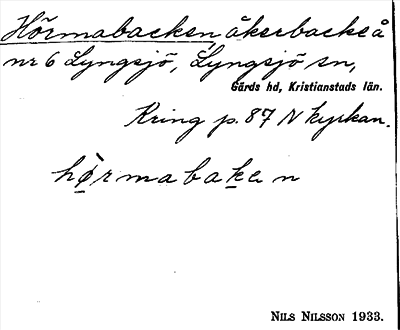 Hörmabacken, åkerbacke å
nr 6 Lyngsjö, Lyngsjö sn,
Gärds hd, Kristianstads län.
Kring p. 87 N kyrkan.
hø̀rmabaken
Nils Nilsson 1933.